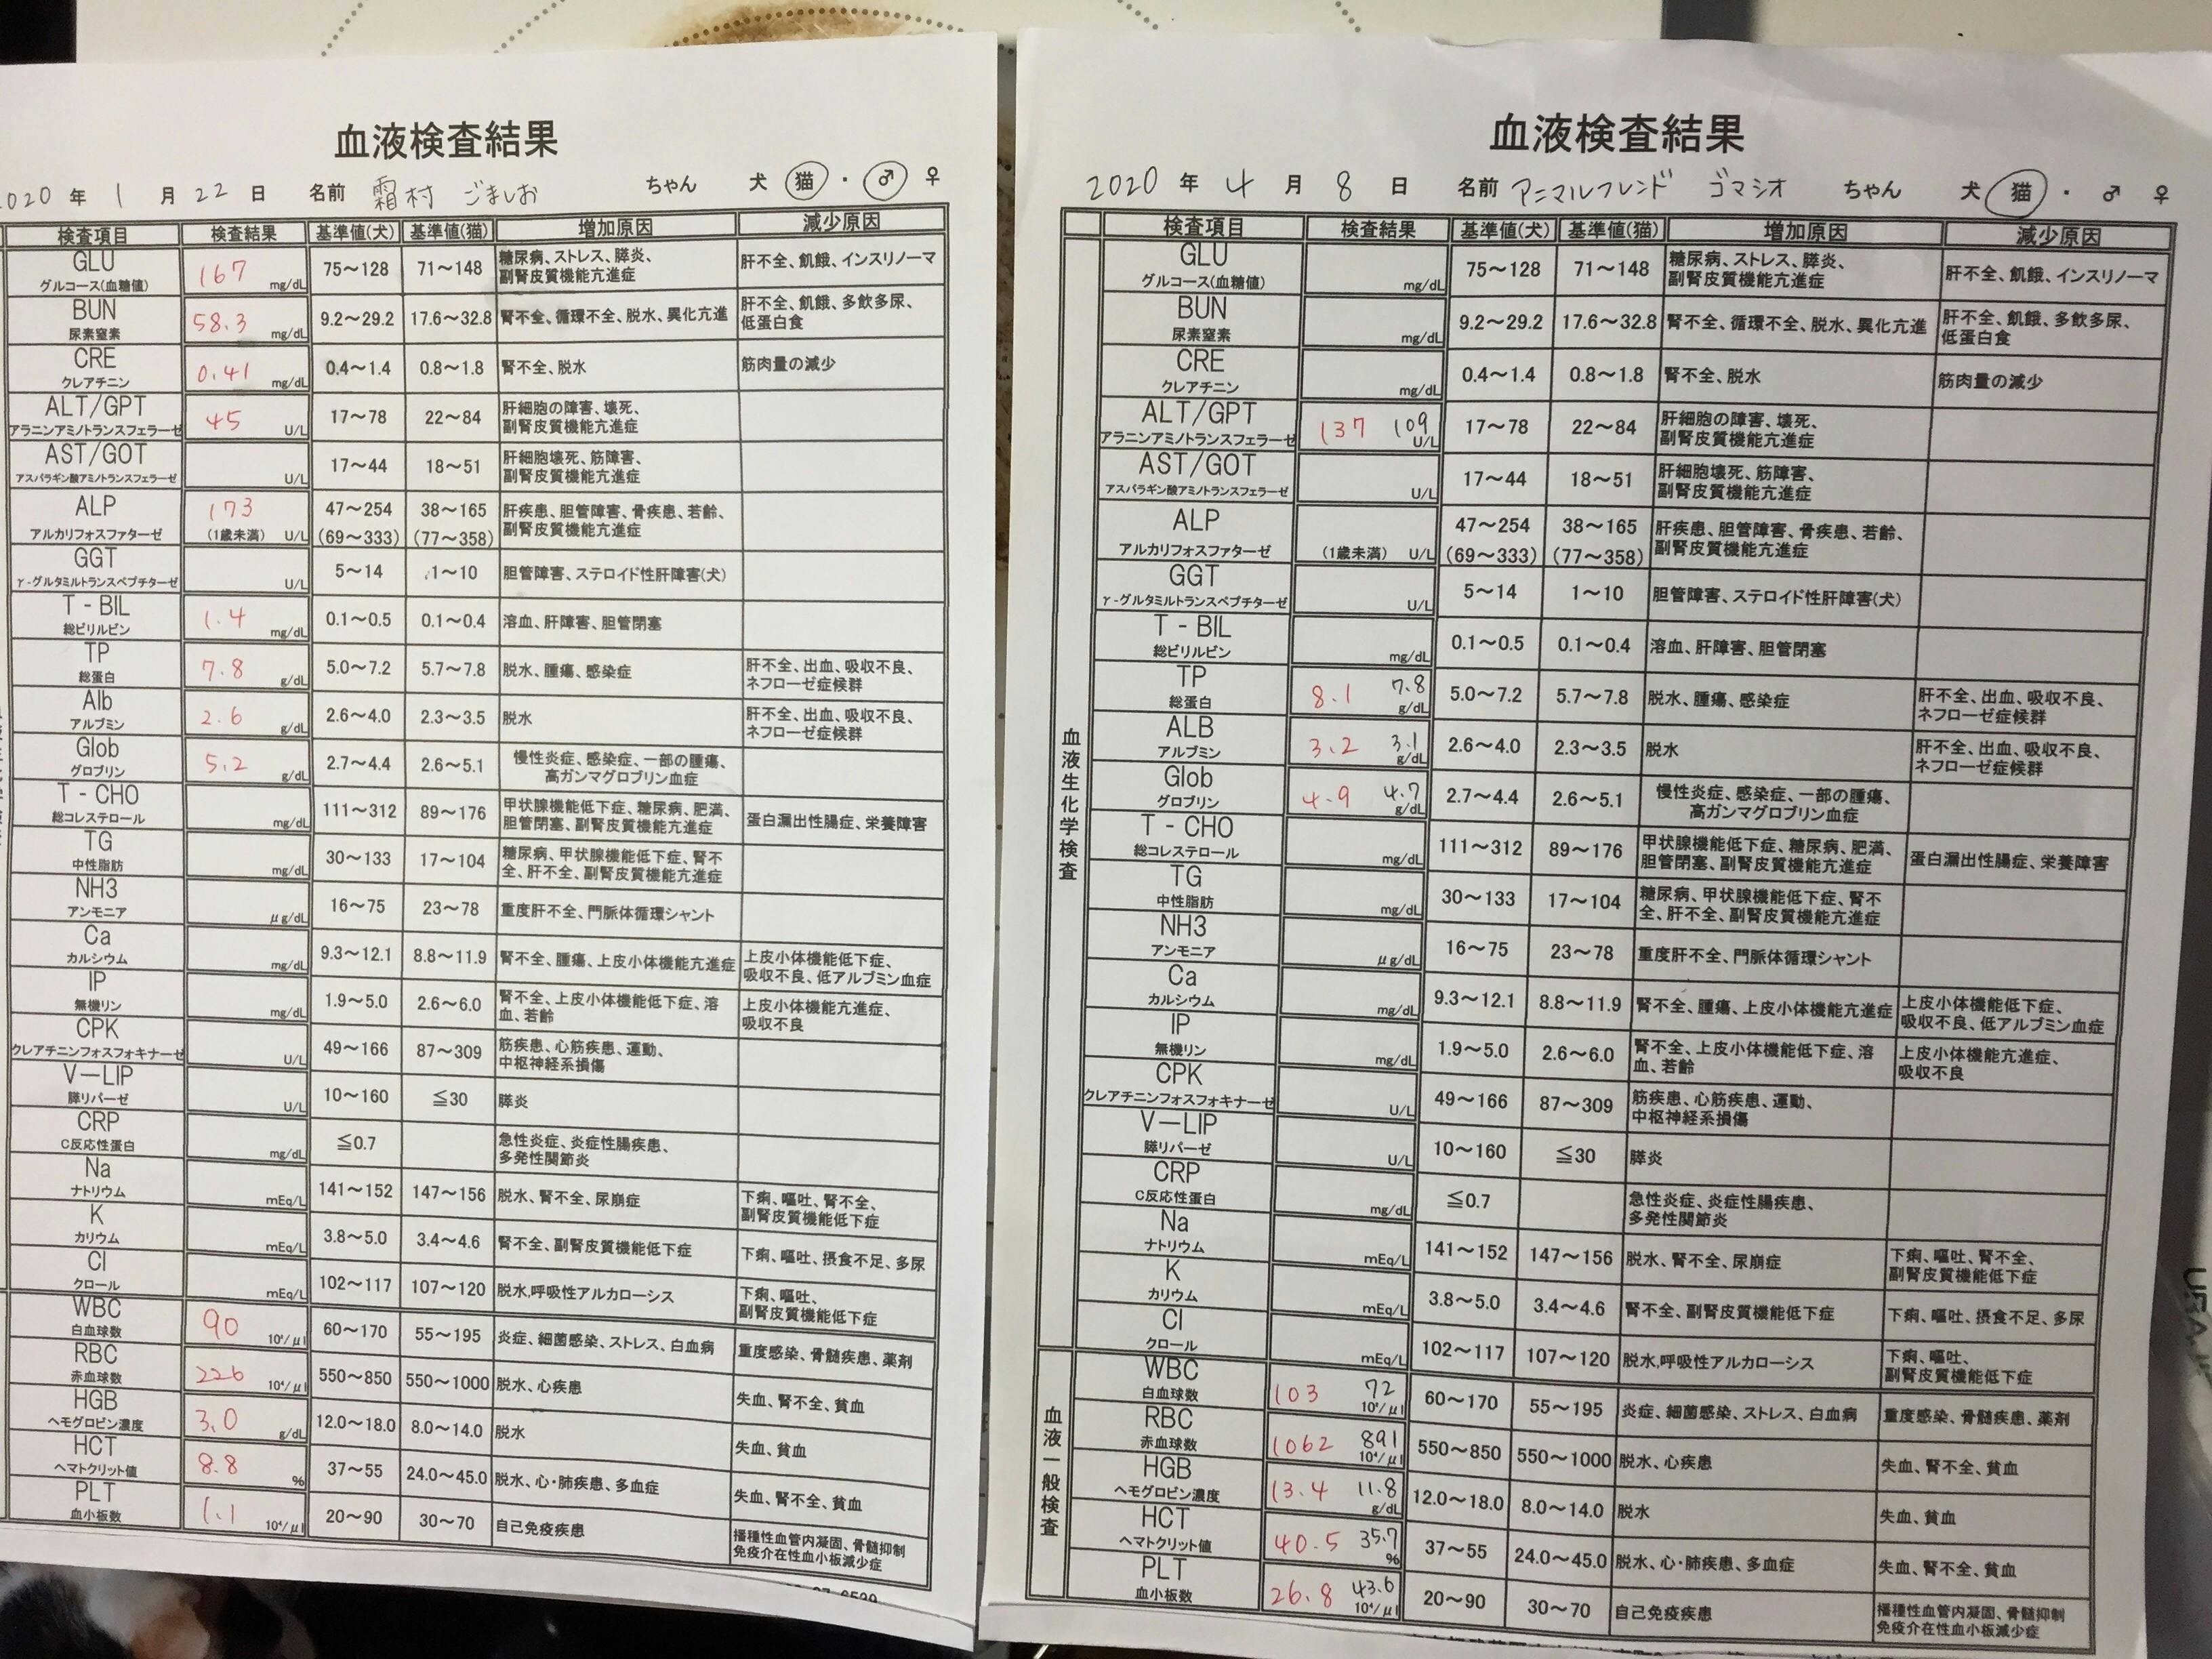 血液検査結果
2020 年 1 月 22 日 名前 霜村 ごましお ちゃん 犬 猫 ・ ♂ ♀
検査項目 検査結果 基準値(犬) 基準値(猫) 増加原因 減少原因
GLU グルコース(血糖値) 167 mg/dL 75～128 71～148 糖尿病、ストレス、膵炎、副腎皮質機能亢進症 肝不全、飢餓、インスリノーマ
BUN 尿素窒素 58.3 mg/dL 9.2～29.2 17.6～32.8 腎不全、循環不全、脱水、異化亢進 肝不全、飢餓、多飲多尿、低蛋白食
CRE クレアチニン 0.41 mg/dL 0.4～1.4 0.8～1.8 腎不全、脱水 筋肉量の減少
ALT/GPT アラニンアミノトランスフェラーゼ 45 U/L 17～78 22～84 肝細胞の障害、壊死、副腎皮質機能亢進症
AST/GOT アスパラギン酸アミノトランスフェラーゼ U/L 17～44 18～51 肝細胞壊死、筋障害、副腎皮質機能亢進症
ALP アルカリフォスファターゼ 173 (1歳未満) U/L 47～254 (69～333) 38～165 (77～358) 肝疾患、胆管障害、骨疾患、若齢、副腎皮質機能亢進症
GGT γ-グルタミルトランスペプチターゼ U/L 5～14 1～10 胆管障害、ステロイド性肝障害(犬)
T-BIL 総ビリルビン 1.4 mg/dL 0.1～0.5 0.1～0.4 溶血、肝障害、胆管閉塞
TP 総蛋白 7.8 g/dL 5.0～7.2 5.7～7.8 脱水、腫瘍、感染症 肝不全、出血、吸収不良、ネフローゼ症候群
Alb アルブミン 2.6 g/dL 2.6～4.0 2.3～3.5 脱水 肝不全、出血、吸収不良、ネフローゼ症候群
Glob グロブリン 5.2 g/dL 2.7～4.4 2.6～5.1 慢性炎症、感染症、一部の腫瘍、高ガンマグロブリン血症
T-CHO 総コレステロール mg/dL 111～312 89～176 甲状腺機能低下症、糖尿病、肥満、胆管閉塞、副腎皮質機能亢進症 蛋白漏出性腸症、栄養障害
TG 中性脂肪 mg/dL 30～133 17～104 糖尿病、甲状腺機能低下症、腎不全、肝不全、副腎皮質機能亢進症
NH3 アンモニア μg/dL 16～75 23～78 重度肝不全、門脈体循環シャント
Ca カルシウム mg/dL 9.3～12.1 8.8～11.9 腎不全、腫瘍、上皮小体機能亢進症 上皮小体機能低下症、吸収不良、低アルブミン血症
IP 無機リン mg/dL 1.9～5.0 2.6～6.0 腎不全、上皮小体機能低下症、溶血、若齢 上皮小体機能亢進症、吸収不良
CPK クレアチニンフォスフォキナーゼ U/L 49～166 87～309 筋疾患、心筋疾患、運動、中枢神経系損傷
V-LIP 膵リパーゼ U/L 10～160 ≦30 膵炎
CRP C反応性蛋白 mg/dL ≦0.7 急性炎症、炎症性腸疾患、多発性関節炎
Na ナトリウム mEq/L 141～152 147～156 脱水、腎不全、尿崩症 下痢、嘔吐、腎不全、副腎皮質機能低下症
K カリウム mEq/L 3.8～5.0 3.4～4.6 腎不全、副腎皮質機能低下症 下痢、嘔吐、摂食不足、多尿
Cl クロール mEq/L 102～117 107～120 脱水,呼吸性アルカローシス 下痢、嘔吐、副腎皮質機能低下症
WBC 白血球数 90 10²/μl 60～170 55～195 炎症、細菌感染、ストレス、白血病 重度感染、骨髄疾患、薬剤
RBC 赤血球数 226 10⁴/μl 550～850 550～1000 脱水、心疾患 失血、腎不全、貧血
HGB ヘモグロビン濃度 3.0 g/dL 12.0～18.0 8.0～14.0 脱水 失血、貧血
HCT ヘマトクリット値 8.8 % 37～55 24.0～45.0 脱水、心・肺疾患、多血症 失血、腎不全、貧血
PLT 血小板数 1.1 10⁴/μl 20～90 30～70 自己免疫疾患 播種性血管内凝固、骨髄抑制 免疫介在性血小板減少症
血液検査結果
2020 年 4 月 8 日 名前 アニマルフレンド ゴマシオ ちゃん 犬 猫 ・ ♂ ♀
検査項目 検査結果 基準値(犬) 基準値(猫) 増加原因 減少原因
血液生化学検査
GLU グルコース(血糖値) mg/dL 75～128 71～148 糖尿病、ストレス、膵炎、副腎皮質機能亢進症 肝不全、飢餓、インスリノーマ
BUN 尿素窒素 mg/dL 9.2～29.2 17.6～32.8 腎不全、循環不全、脱水、異化亢進 肝不全、飢餓、多飲多尿、低蛋白食
CRE クレアチニン mg/dL 0.4～1.4 0.8～1.8 腎不全、脱水 筋肉量の減少
ALT/GPT アラニンアミノトランスフェラーゼ 137 109 U/L 17～78 22～84 肝細胞の障害、壊死、副腎皮質機能亢進症
AST/GOT アスパラギン酸アミノトランスフェラーゼ U/L 17～44 18～51 肝細胞壊死、筋障害、副腎皮質機能亢進症
ALP アルカリフォスファターゼ (1歳未満) U/L 47～254 (69～333) 38～165 (77～358) 肝疾患、胆管障害、骨疾患、若齢、副腎皮質機能亢進症
GGT γ-グルタミルトランスペプチターゼ U/L 5～14 1～10 胆管障害、ステロイド性肝障害(犬)
T-BIL 総ビリルビン mg/dL 0.1～0.5 0.1～0.4 溶血、肝障害、胆管閉塞
TP 総蛋白 8.1 7.8 g/dL 5.0～7.2 5.7～7.8 脱水、腫瘍、感染症 肝不全、出血、吸収不良、ネフローゼ症候群
ALB アルブミン 3.2 3.1 g/dL 2.6～4.0 2.3～3.5 脱水 肝不全、出血、吸収不良、ネフローゼ症候群
Glob グロブリン 4.9 4.7 g/dL 2.7～4.4 2.6～5.1 慢性炎症、感染症、一部の腫瘍、高ガンマグロブリン血症
T-CHO 総コレステロール mg/dL 111～312 89～176 甲状腺機能低下症、糖尿病、肥満、胆管閉塞、副腎皮質機能亢進症 蛋白漏出性腸症、栄養障害
TG 中性脂肪 mg/dL 30～133 17～104 糖尿病、甲状腺機能低下症、腎不全、肝不全、副腎皮質機能亢進症
NH3 アンモニア μg/dL 16～75 23～78 重度肝不全、門脈体循環シャント
Ca カルシウム mg/dL 9.3～12.1 8.8～11.9 腎不全、腫瘍、上皮小体機能亢進症 上皮小体機能低下症、吸収不良、低アルブミン血症
IP 無機リン mg/dL 1.9～5.0 2.6～6.0 腎不全、上皮小体機能低下症、溶血、若齢 上皮小体機能亢進症、吸収不良
CPK クレアチニンフォスフォキナーゼ U/L 49～166 87～309 筋疾患、心筋疾患、運動、中枢神経系損傷
V-LIP 膵リパーゼ U/L 10～160 ≦30 膵炎
CRP C反応性蛋白 mg/dL ≦0.7 急性炎症、炎症性腸疾患、多発性関節炎
Na ナトリウム mEq/L 141～152 147～156 脱水、腎不全、尿崩症 下痢、嘔吐、腎不全、副腎皮質機能低下症
K カリウム mEq/L 3.8～5.0 3.4～4.6 腎不全、副腎皮質機能低下症 下痢、嘔吐、摂食不足、多尿
Cl クロール mEq/L 102～117 107～120 脱水,呼吸性アルカローシス 下痢、嘔吐、副腎皮質機能低下症
血液一般検査
WBC 白血球数 103 72 10²/μl 60～170 55～195 炎症、細菌感染、ストレス、白血病 重度感染、骨髄疾患、薬剤
RBC 赤血球数 1062 891 10⁴/μl 550～850 550～1000 脱水、心疾患 失血、腎不全、貧血
HGB ヘモグロビン濃度 13.4 11.8 g/dL 12.0～18.0 8.0～14.0 脱水 失血、貧血
HCT ヘマトクリット値 40.5 35.7 % 37～55 24.0～45.0 脱水、心・肺疾患、多血症 失血、腎不全、貧血
PLT 血小板数 26.8 43.6 10⁴/μl 20～90 30～70 自己免疫疾患 播種性血管内凝固、骨髄抑制 免疫介在性血小板減少症